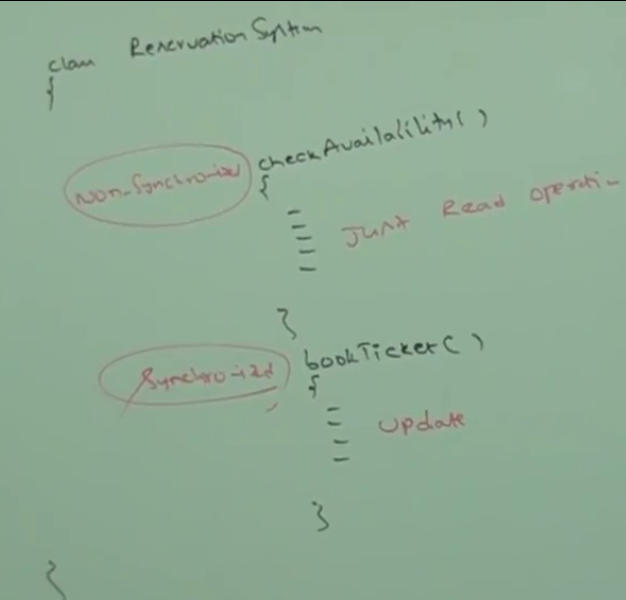 class ReservationSystem
{
Non-Synchronized checkAvailability()
{
Just Read operati-
}
Synchronized bookTicket()
{
update
}
}